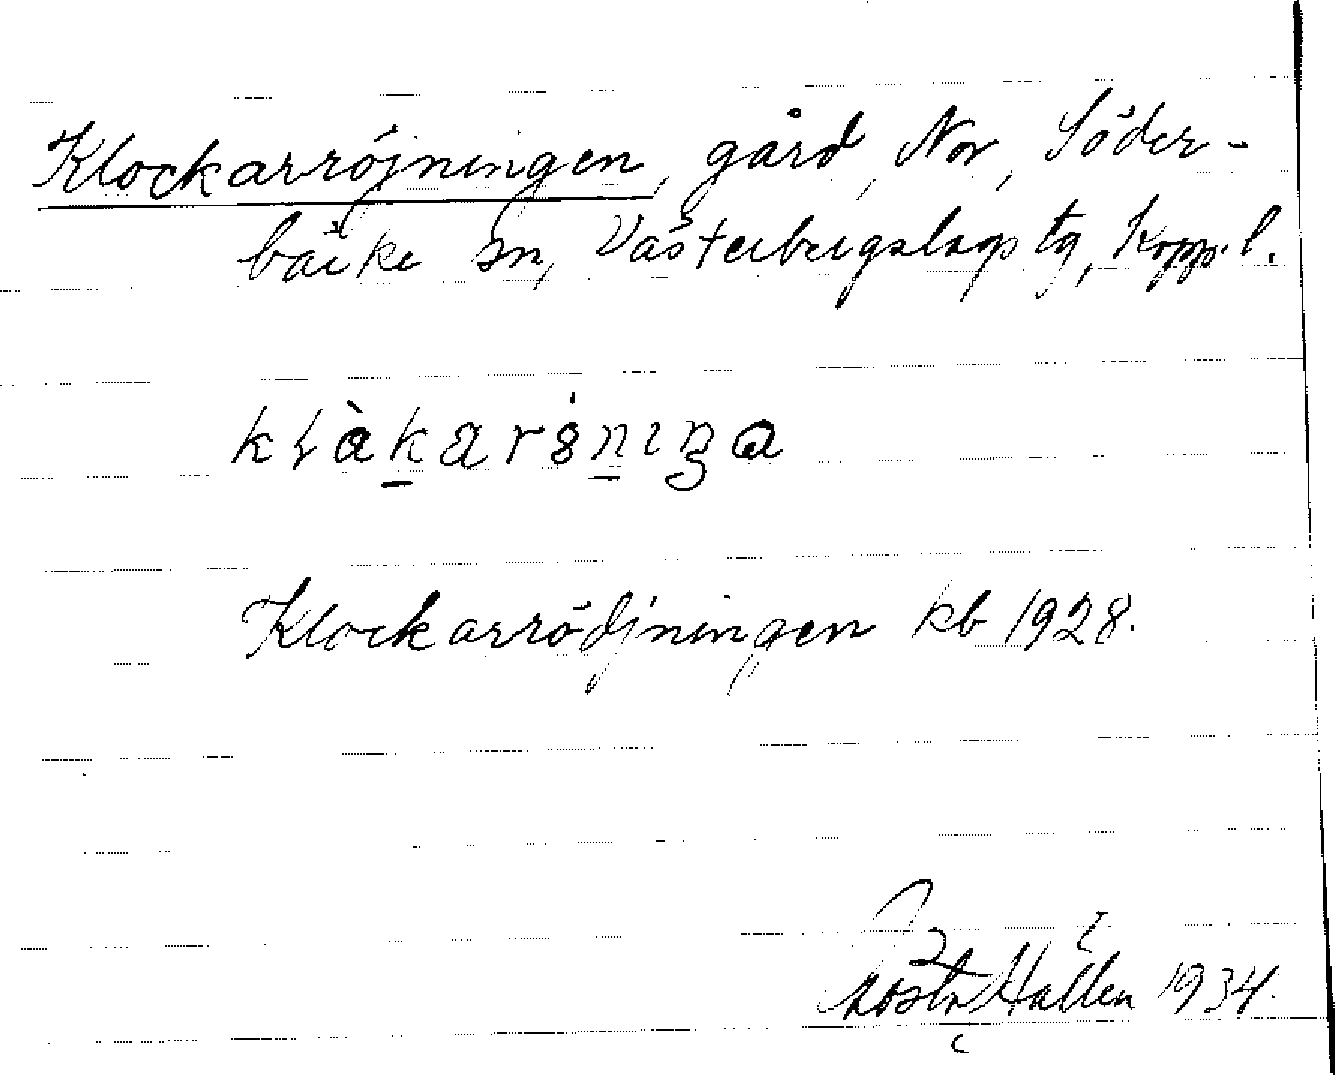 Klockarröjningen, gård, Nor, Söder-
bärke sn, Västerbergslags tg, Kopp. l.
Klockarrödjningen kb 1928.
Gösta Hallén 1934.